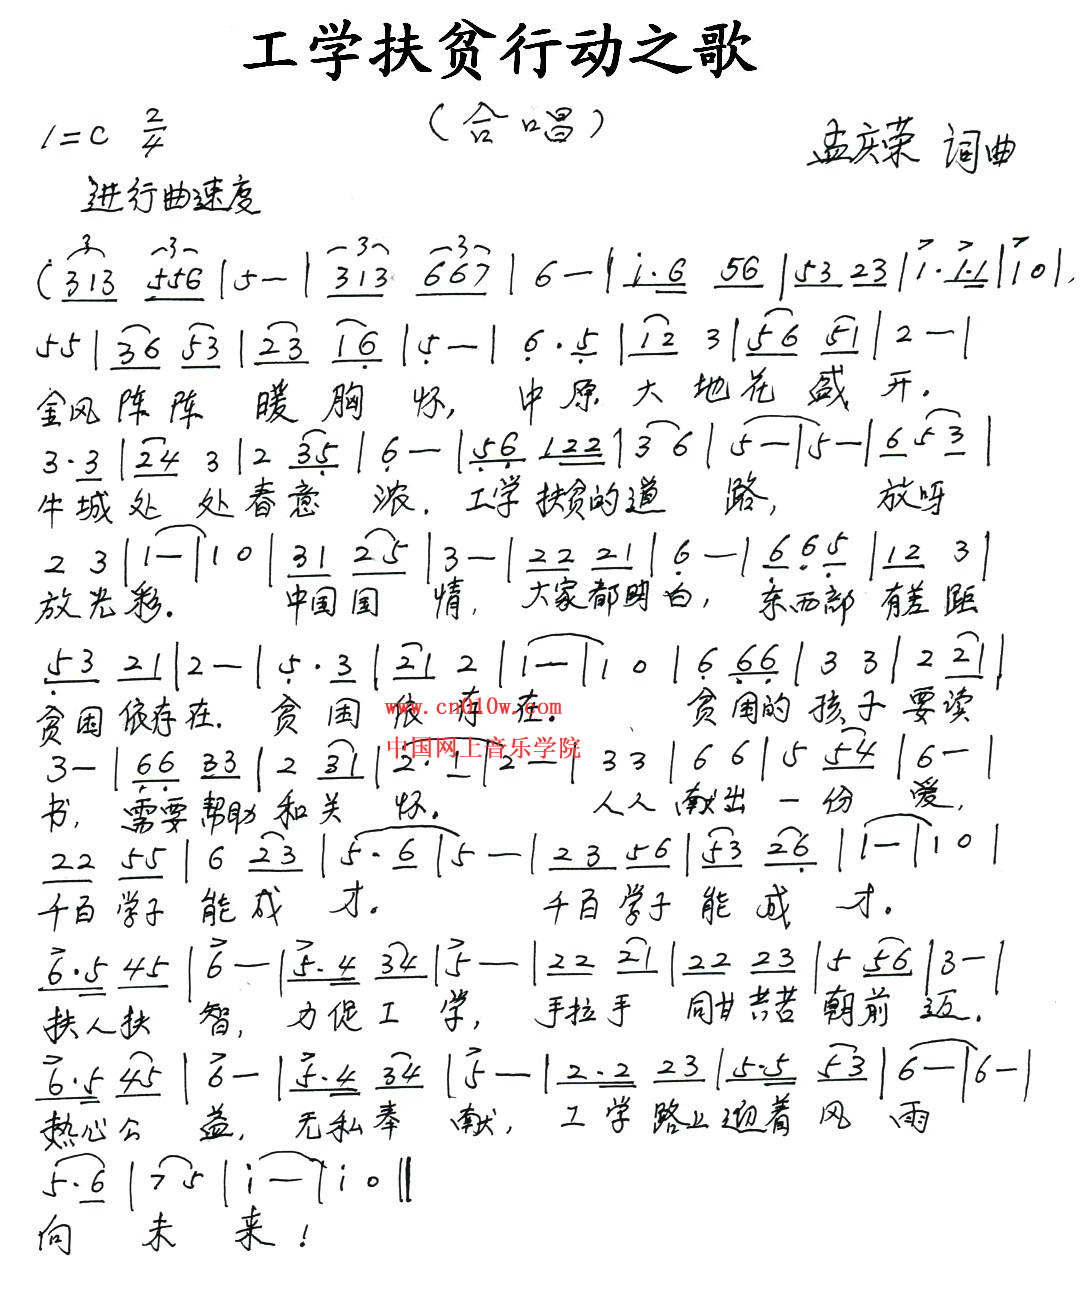 工学扶贫行动之歌
(合唱)
1=C 2/4
孟庆荣 词曲
进行曲速度
3 3 3 3
(313 556 | 5 — | 313 667 | 6 — | i·6 56 | 53 23 | i·i·i | i 0 ),
55 | 36 53 | 23 16 | 5 — | 6·5 | 12 3 | 56 51 | 2 — |
金风阵阵 暖胸怀, 中原大地花盛开.
3·3 | 24 3 | 2 35 | 6 — | 56 122 | 3 6 | 5 — | 5 — | 6 53 |
牛城处处春意浓. 工学扶贫的道路, 放呀
2 3 | 1 — | 1 0 | 31 25 | 3 — | 22 21 | 6 — | 665 | 12 3 |
放光彩. 中国国情, 大家都明白, 东西部有差距
53 21 | 2 — | 5·3 | 21 2 | 1 — | 1 0 | 6 66 | 3 3 | 2 21 |
贫困依存在. 贫困依存在. 贫困的孩子要读
www.cn010w.com
中国网上音乐学院
3 — | 66 33 | 2 31 | 2·1 | 2 — | 33 | 66 | 5 54 | 6 — |
书, 需要帮助和关怀. 人人献出一份爱,
22 55 | 6 23 | 5·6 | 5 — | 23 56 | 53 26 | 1 — | 1 0 |
千百学子能成才. 千百学子能成才.
6·5 45 | 6 — | 5·4 34 | 5 — | 22 21 | 22 23 | 5 56 | 3 — |
扶人扶智, 力促工学, 手拉手 同甘共苦朝前迈.
6·5 45 | 6 — | 5·4 34 | 5 — | 2·2 23 | 5·5 53 | 6 — | 6 — |
热心公益, 无私奉献, 工学路上迎着风雨
5·6 | 7 5 | i — | i 0 ‖
向未来!